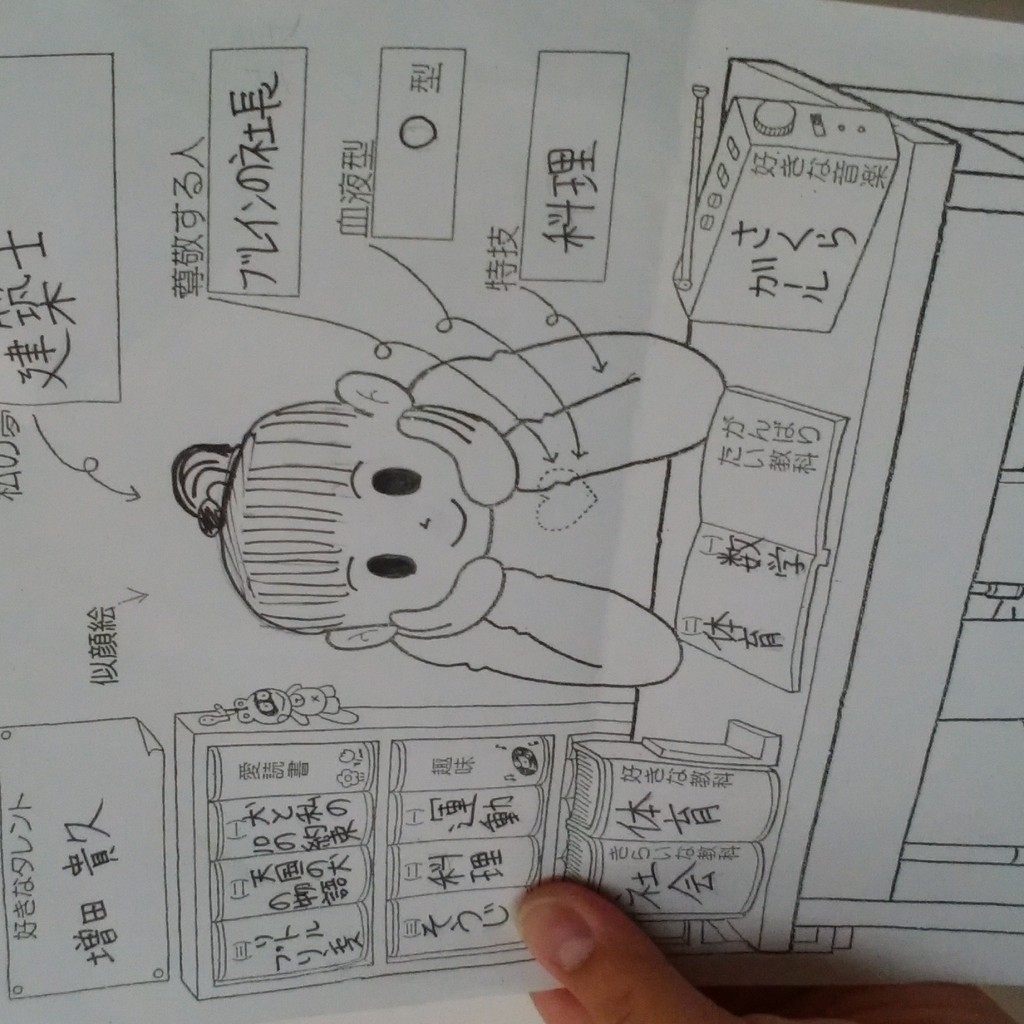 好きなタレント
増田 貴久
私の夢
建築士
似顔絵
尊敬する人
ブレインの社長
血液型
O 型
特技
料理
愛読書
(一) 犬と私の
10の約束
(二) 天国の犬
の物語
(三)
趣味
(一) 運動
(二) 料理
(三) そうじ
好きな教科
体育
きらいな教科
社会
がんばり
たい教科
(一) 数学
(二) 体育
好きな音楽
さくら
ガール